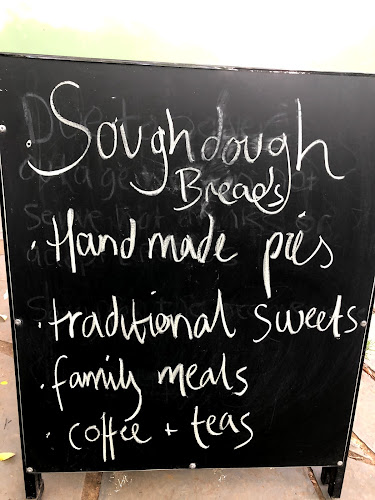 · Soughdough
Breads
· Hand made pies
· traditional sweets
· family meals
· coffee + teas